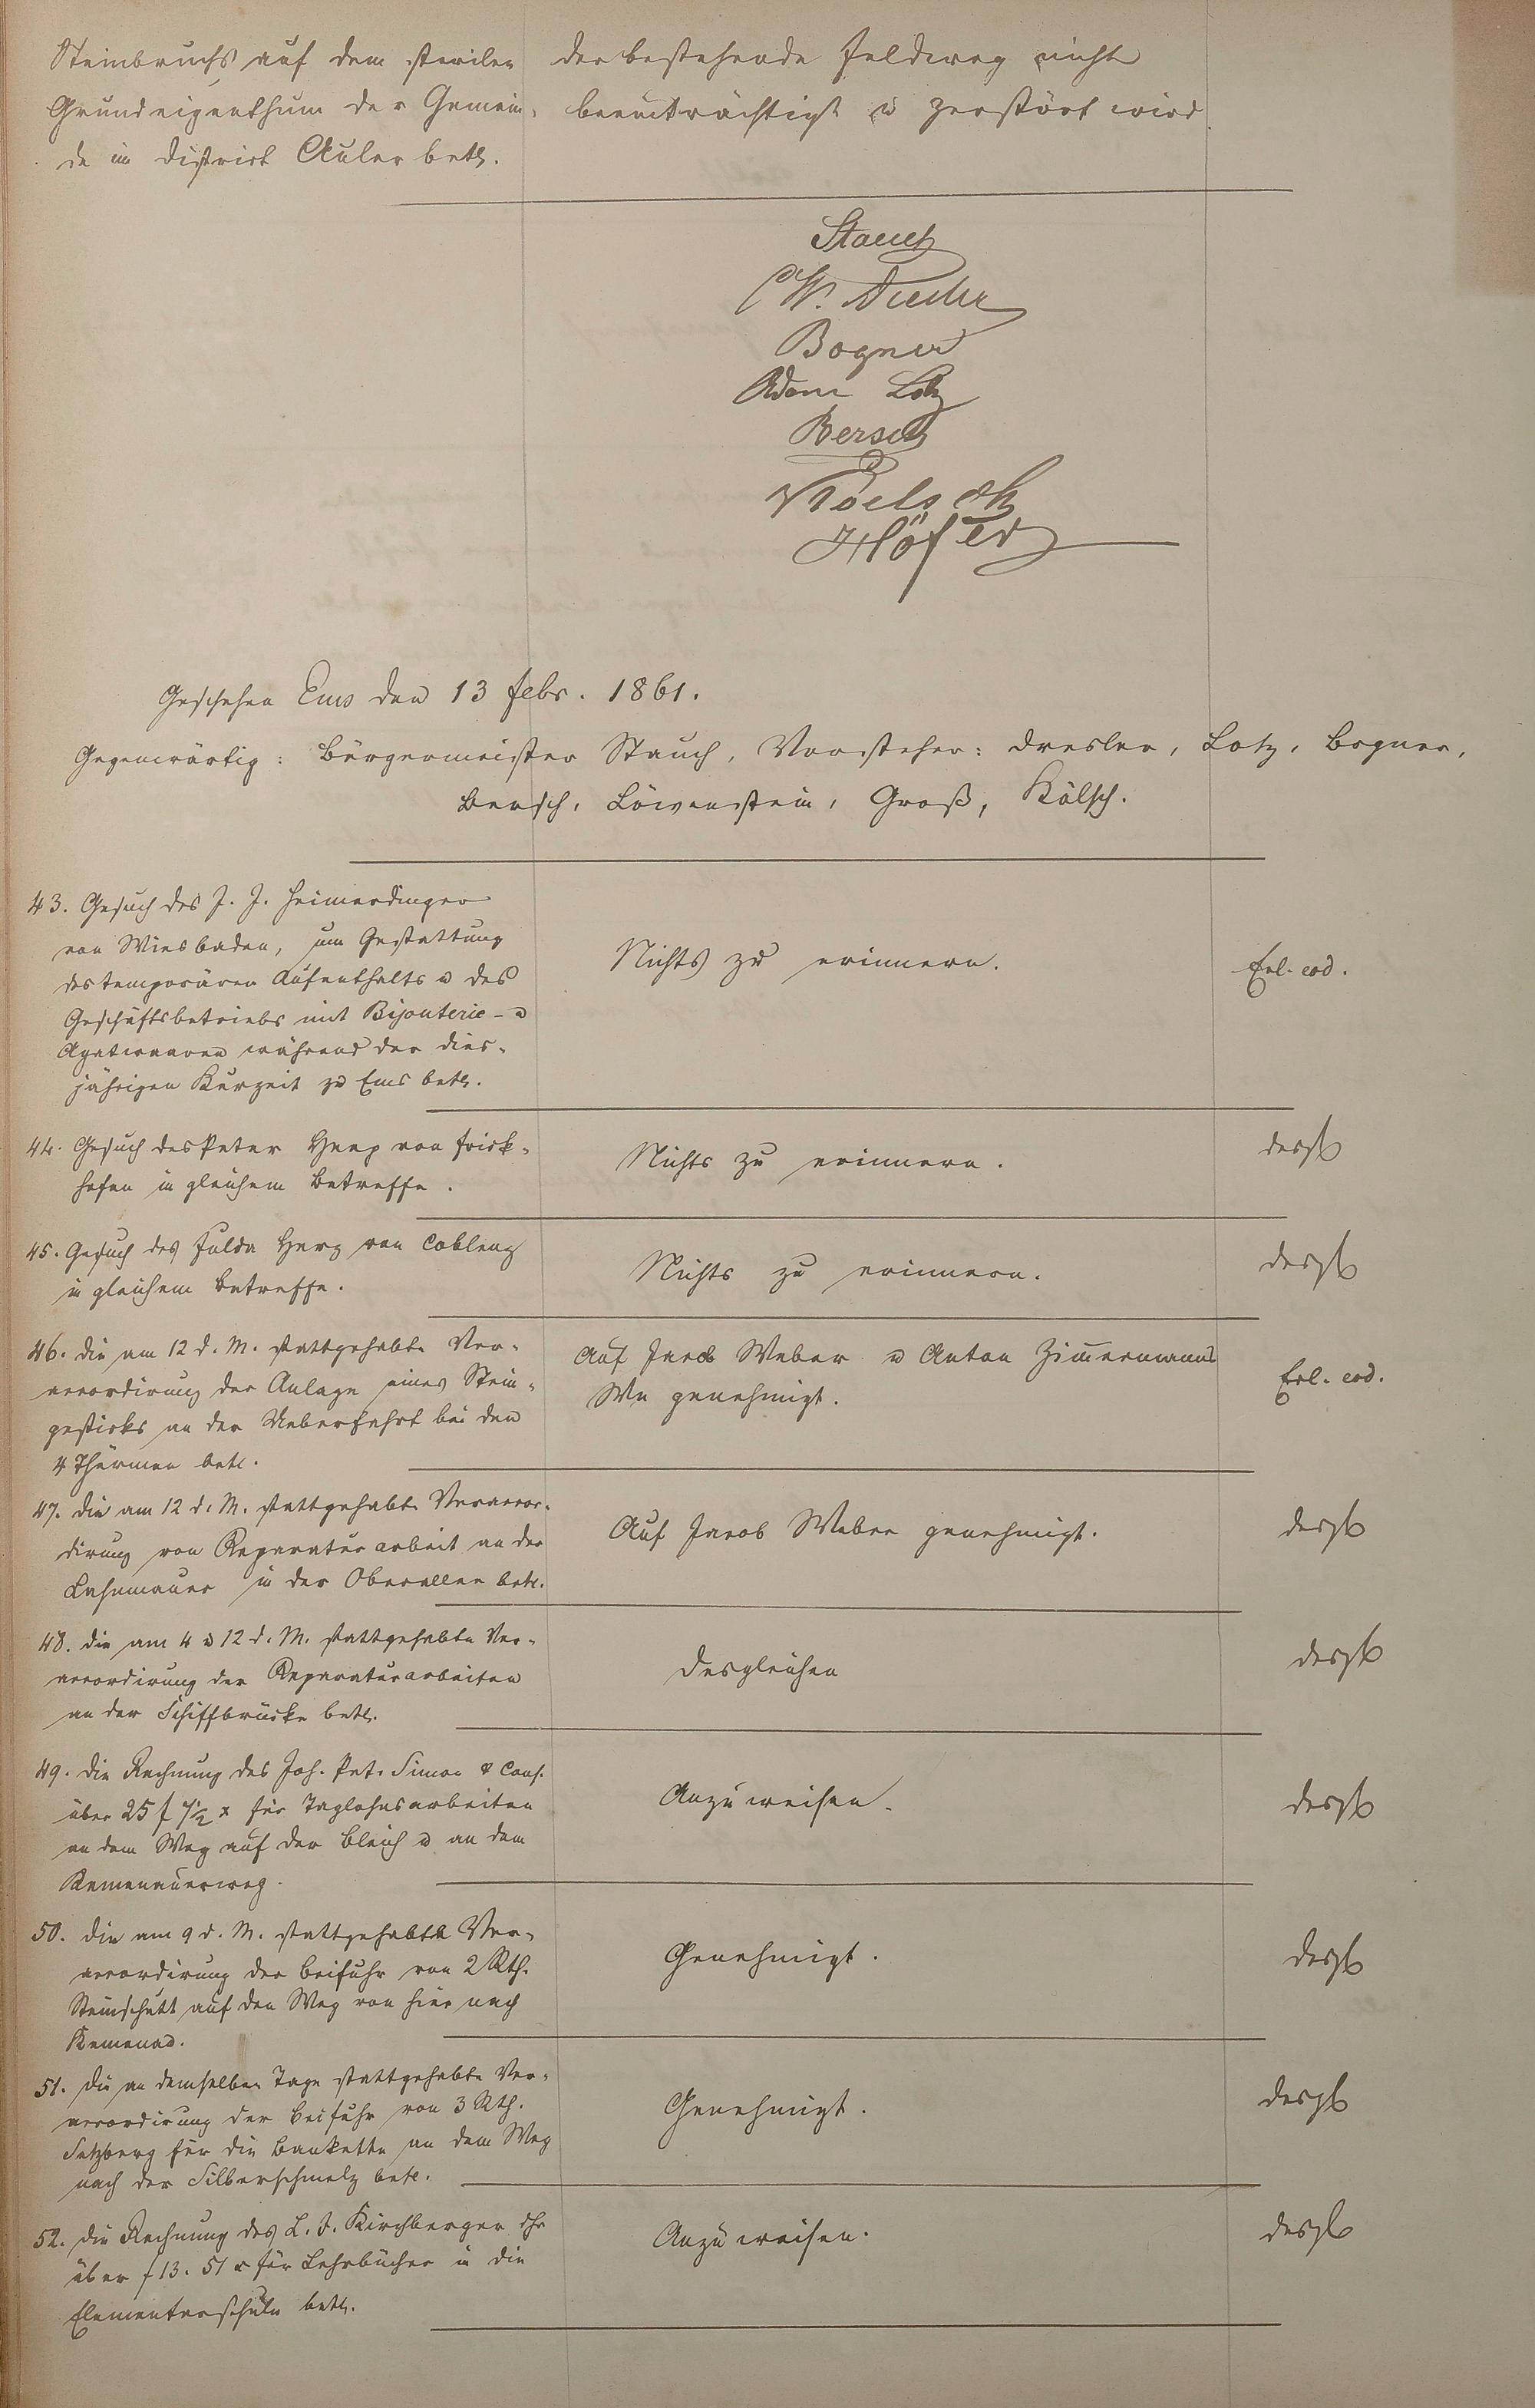 Steinbruchs auf dem sterilen
Grundeigenthum der Gemein-
de in District Auler betr.
der bestehende Feldweg nicht
beeinträchtigt u zerstört wird
Stauch
Bogner
Adam Lotz
Bersch
Koelsch
Höfer
Geschehen Ems den 13 Febr. 1861.
Gegenwärtig: Bürgermeister Stauch, Vorsteher: Dresler, Lotz, Bogner,
Bersch, Löwenstein, Groß, Kölsch.
43. Gesuch des J. J. Heimerdinger
von Wiesbaden, um Gestattung
des temporären Aufenthalts u des
Geschäftsbetriebs mit Bijouterie- u
Agatwaaren während der dies-
jährigen Kurzeit zu Ems betr.
Nichts zu erinnern.
Erl. eod.
44. Gesuch des Peter Heep von Frick-
hofen in gleichem Betreffe.
Nichts zu erinnern.
desgl
45. Gesuch des Fulda Herz von Coblenz
in gleichem Betreffe.
Nichts zu erinnern.
desgl
46. Die am 12 d. M. stattgehabte Ver-
accordirung der Anlage eines Stein-
gestücks an der Ueberfahrt bei den
4 Thürmen betr.
Auf Jacob Weber u Anton Zimmermanns
We genehmigt.
Erl. eod.
47. Die am 12 d. M. stattgehabte Veraccor-
dirung von Reparaturarbeit an der
Lahnmauer in der Oberallee betr.
Auf Jacob Weber genehmigt.
desgl
48. Die am 4 u 12 d. M. stattgehabte Ver-
accordirung der Reparaturarbeiten
an der Schiffbrücke betr.
Desgleichen
desgl
49. Die Rechnung des Joh. Pet. Simon & Cons.
über 25 f 7½ x für Taglohnsarbeiten
an dem Weg auf der Bleich u an dem
Kemenauerweg.
Anzuweisen.
desgl
50. Die am 9 d. M. stattgehabte Ver-
accordirung der Beifuhr von 2 Rth.
Steinschutt auf den Weg von hier nach
Kemenau.
Genehmigt.
desgl
51. Die an demselben Tage stattgehabte Ver-
accordirung der Beifuhr von 3 Rth.
Setzberg für die Bankette an dem Weg
nach der Silberschmelz betr.
Genehmigt.
desgl
52. Die Rechnung des L. J. Kirchberger dhr
über f 13. 51 x für Lehrbücher in die
Elementarschule betr.
Anzuweisen.
desgl